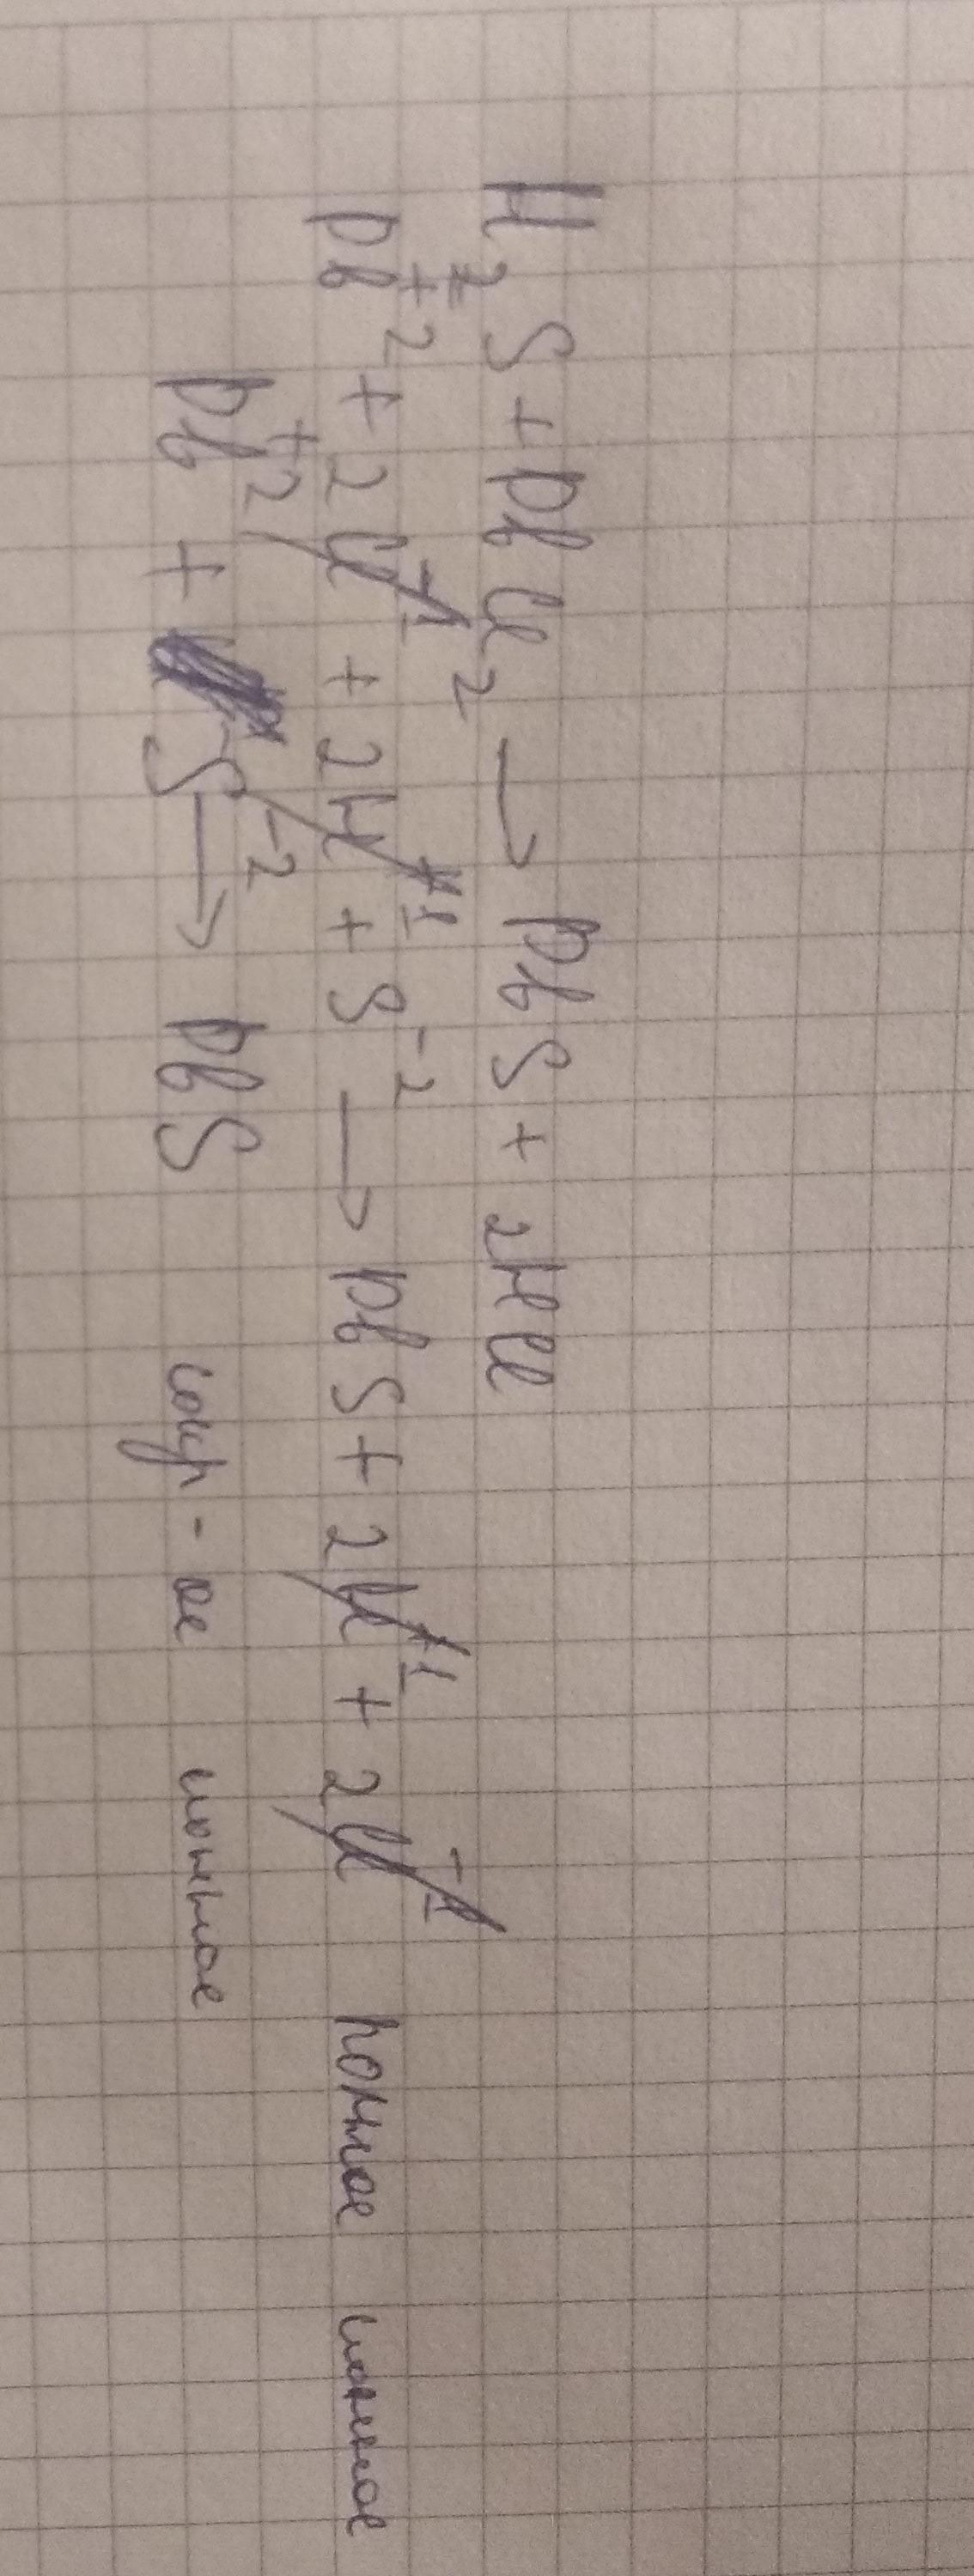 H₂S + PbCl₂ → PbS + 2HCl
Pb⁺² + 2Cl⁻¹ + 2H⁺¹ + S⁻² → PbS + 2H⁺¹ + 2Cl⁻¹ полное ионное
Pb⁺² + S⁻² → PbS сокр-ое ионное